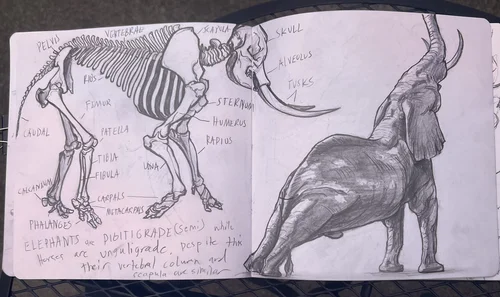 PELVIS
VERTEBRAE
SCAPULA
SKULL
ALVEOLUS
TUSKS
RIBS
FEMUR
STERNUM
HUMERUS
RADIUS
CAUDAL
PATELLA
TIBIA
FIBULA
ULNA
CALCANEUM
CARPALS
METACARPALS
PHALANGES
ELEPHANTS are DIGITIGRADE (semi) while
Horses are unguligrade, Despite this
their vertebral column and
scapula are similar